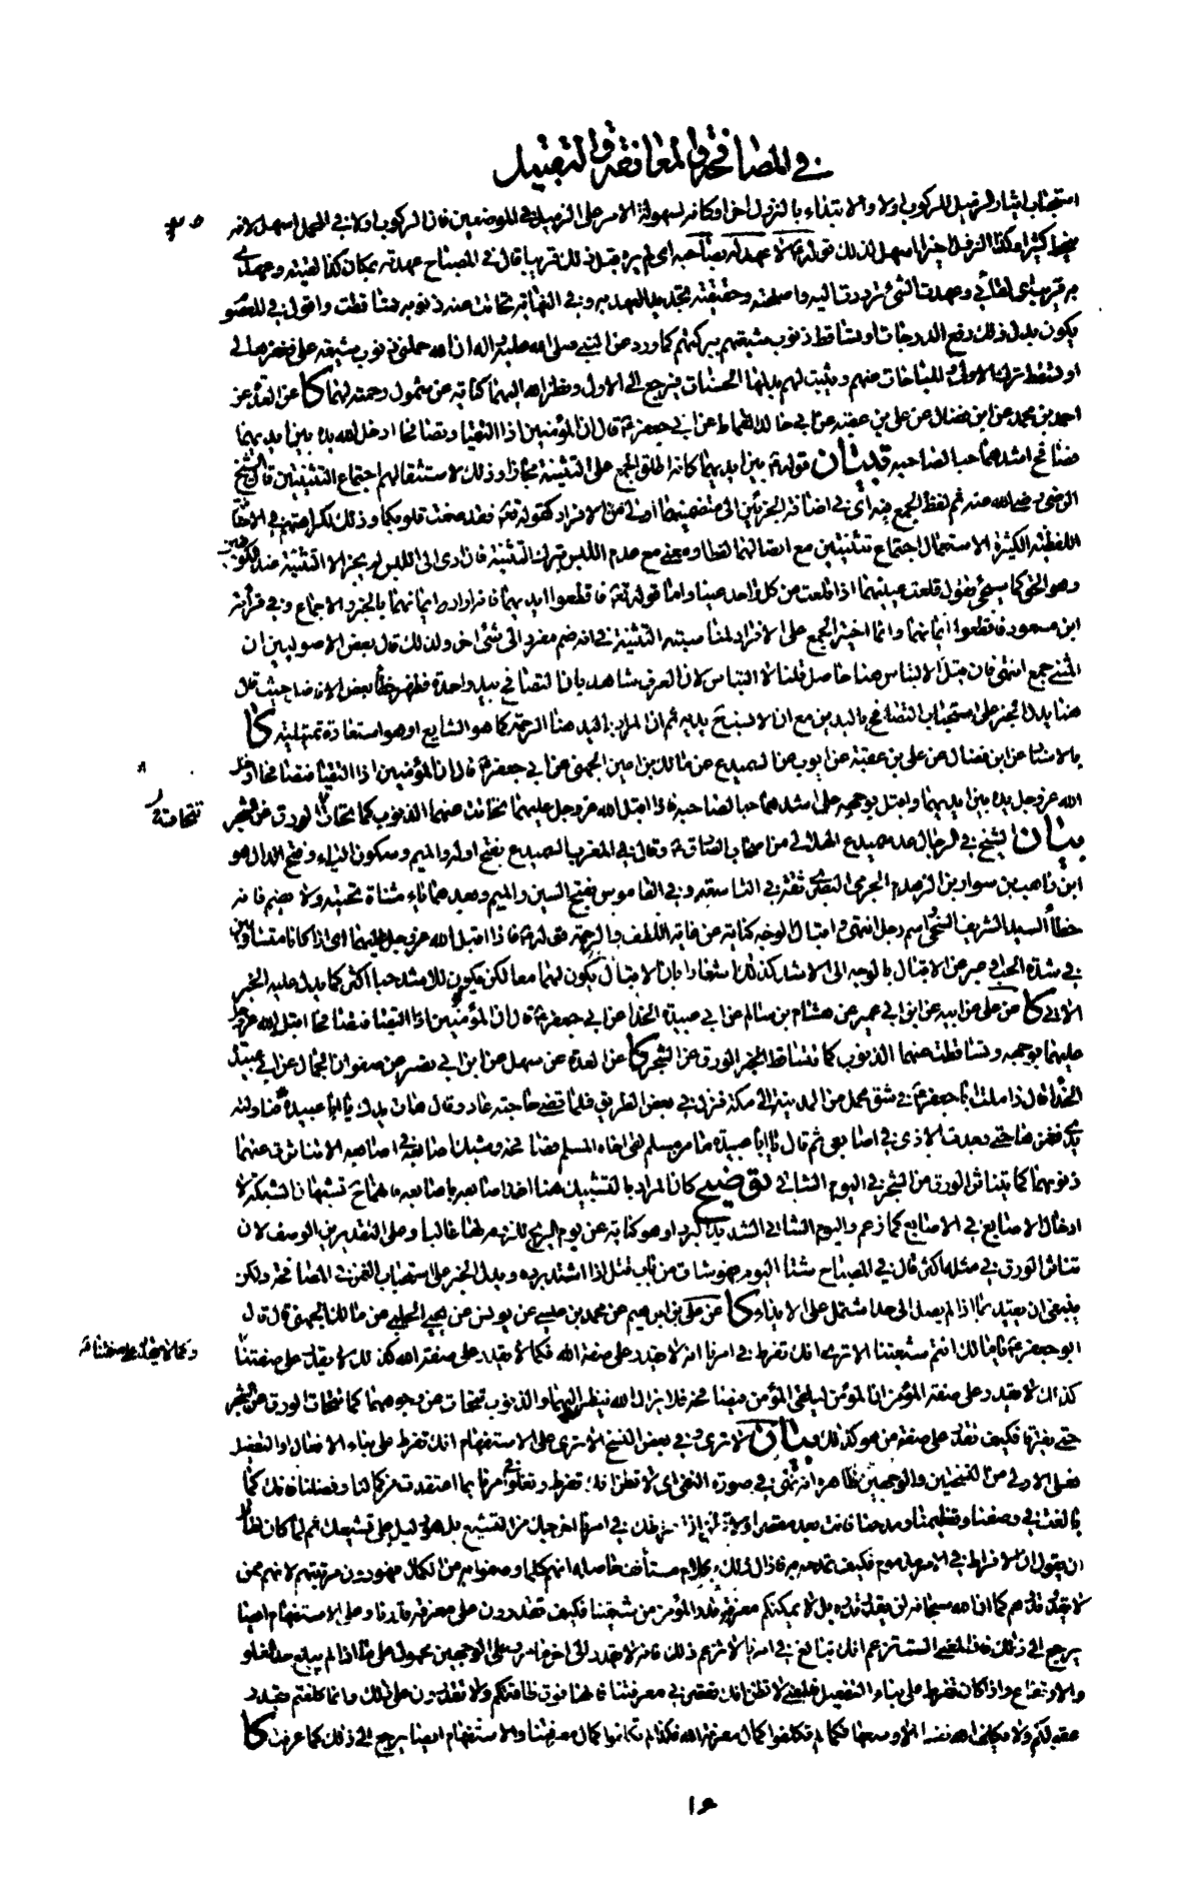 في المصافحة والمعانقة والتقبيل
استحباب ايثار الزميل للركوب اولا والابتداء بالنزول اخرا وكانه لسهولة الامر على الزميل في الموضعين فان الركوب اولا في المحمل اسهل لانه
كثيرا وكذا النزول اخيرا اسهل لذلك قوله لا عهد له بصاحبه اي لم يره قبل ذلك قريبا قال في المصباح عهدته بمكان كذا لقيته وعهدي
به قريب اي لقائي وعهدت الشيء ترددت اليه واصلحته وحقيقته تجديد العهد به وفي النهاية تحاتت عنه ذنوبه تساقطت واقول في المعصوم
يكون بدل ذلك رفع الدرجات او تساقط ذنوب شيعتهم ببركتهم كما ورد عن النبي صلى الله عليه واله ان الله حملني ذنوب شيعة علي فغفرها لي
او تسقط ترك الاولى والمباحات منهم ويثبت لهم بدلها الحسنات فيرجع الى الاول ونظر الله اليهما كناية عن شمول رحمته لهما كا عن العدة عن
احمد بن محمد عن ابن فضال عن علي بن عقبة عن ابي خالد القماط عن ابي جعفر ع قال ان المؤمنين اذا التقيا وتصافحا ادخل الله يده بين ايديهما
فصافح اشدهما حبا لصاحبه بيان قوله ع بين ايديهما كانه اطلق الجمع على التثنية مجازا وذلك لاستثقالهم اجتماع التثنيتين قال الشيخ
الرضي رضي الله عنه ثم لفظ الجمع فيه اي في اضافة الجزئين الى متضمنيهما اولى من الافراد كقوله تعالى فقد صغت قلوبكما وذلك لكراهتهم في الاضافة
اللفظية الكثيرة الاستعمال اجتماع تثنيتين مع اتصالهما لفظا ومعنى مع عدم اللبس بترك التثنية فان ادى الى اللبس لم يجز الا التثنية عند الكوفيين
وهو الحق كما سيجيء تقول قلعت عينيهما اذا قلعت من كل واحد عينا واما قوله تعالى فاقطعوا ايديهما فانه اراد ايمانهما بالخبر والاجماع وفي قراءة
ابن مسعود فاقطعوا ايمانهما وانما اختير الجمع على الافراد لمناسبته التثنية في انه ضم مفرد الى شيء اخر ولذلك قال بعض الاصوليين ان
المثنى جمع انتهى فان قيل الالتباس هنا حاصل قلنا لا التباس لان العرف شاهد بان التصافح بيد واحدة فظهر خطأ بعض الافاضل حيث قال
هنا يدل الخبر على استحباب التصافح باليدين مع ان الانسب ح يديه ثم ان المراد باليد هنا الرحمة كما هو الشايع او هو استعارة تمثيلية كا
بالاسناد عن ابن فضال عن علي بن عقبة عن ايوب عن السميدع عن مالك بن اعين الجهني عن ابي جعفر ع قال ان المؤمنين اذا التقيا فتصافحا ادخل
الله عز وجل يده بين ايديهما واقبل بوجهه على اشدهما حبا لصاحبه فاذا اقبل الله عز وجل عليهما تحاتت عنهما الذنوب كما يتحات الورق من الشجر
بيان الشيخ في الرجال عد سميدع الهلالي من اصحاب الصادق ع وقال في المغرب السميدع بفتح اوله والميم وسكون الياء وفتح الدال هو
ابن واهب بن سوار بن الجرمي البصري ثقة في التاسعة وفي القاموس بفتح السين والميم وبعدهما ياء مثناة تحتية ولا يضم فانه
خطأ السيد الشريف السخي اسم رجل انتهى واقبال الوجه كناية عن غاية اللطف والرحمة قوله ع فاذا اقبل الله عز وجل عليهما اي اذا كانا متساويين
في شدة الحب او عبر عن الاقبال بالوجه الى الاشد كذلك اشعارا بان الاقبال يكون لهما معا لكن يكون للاشد حبا اكثر كما يدل عليه الخبر
الاتي كا عن علي عن ابيه عن ابن ابي عمير عن هشام بن سالم عن ابي عبيدة الحذاء عن ابي جعفر ع قال ان المؤمنين اذا التقيا فتصافحا اقبل الله عز وجل
عليهما بوجهه وتساقطت عنهما الذنوب كما تتساقط الورق عن الشجر كا عن العدة عن سهل عن ابن ابي نصر عن صفوان الجمال عن ابي عبيدة
الحذاء قال زاملت ابا جعفر ع في شق محمل من المدينة الى مكة فنزل في بعض الطريق فلما قضى حاجته عاد وقال هات يدك يا ابا عبيدة فناولته
يدي فغمزها حتى وجدت الاذى في اصابعي ثم قال يا ابا عبيدة ما من مسلم لقي اخاه المسلم فصافحه وشبك اصابعه في اصابعه الا تناثرت عنهما
ذنوبهما كما يتناثر الورق من الشجر في اليوم الشاتي توضيح كان المراد بالتشبيك هنا اخذ اصابعه باصابعه فانهما ح تشبهان الشبكة لا
ادخال الاصابع في الاصابع كما زعم واليوم الشاتي الشديد البرد او هو كناية عن يوم الريح للزومه لها غالبا وعلى التقديرين الوصف لان
تناثر الورق في مثله اكثر قال في المصباح شتا اليوم فهو شات من باب قتل اذا اشتد برده ويدل الخبر على استحباب الغمز في المصافحة ولكن
ينبغي ان يقيد بما اذا لم يصل الى حد اشتمل على الايذاء كا عن علي بن ابرهيم عن محمد بن عيسى عن يونس عن يحيى الحلبي عن مالك الجهني قال قال
ابو جعفر ع يا مالك انتم شيعتنا الا ترى انك تفرط في امرنا انه لا يقدر على صفة الله فكما لا يقدر على صفة الله كذلك لا يقدر على صفتنا
وكما لا يقدر على صفتنا
كذلك لا يقدر على صفة المؤمن ان المؤمن ليلقى المؤمن فيصافحه فلا يزال الله ينظر اليهما والذنوب تتحات عن وجوههما كما يتحات الورق من الشجر
حتى يفترقا فكيف يقدر على صفة من هو كذلك بيان لا ترى وفي بعض النسخ الا ترى على الاستفهام انك تفرط على بناء الافعال او التفعيل
فعلى الاولى من النسختين والوجهين ظاهره انه نهي في صورة النفي اي لا تظن انك تفرط وتغلو في امرنا بما اعتقدت من كمالنا وفضلنا فانك كلما
بالغت في وصفنا وتعظيمنا ومدحنا فانت بعد مقصر
ان يقول ان الافراط في الامر مذموم فكيف تمدحه به فازال ذلك بكلام مستأنف حاصله انهم كلما وصفوا به من الكمال فهو دون مرتبتهم لانهم ممن
لا يقدر قدرهم كما ان الله سبحانه لن يقدر قدره بل لا يمكنكم معرفة قدر المؤمن من شيعتنا فكيف تقدرون على معرفة قدرنا وعلى الاستفهام ايضا
يرجع الى ذلك فان المعنى الست تزعم انك تبالغ في امرنا لا تزعم ذلك فانه لا يقدر الى اخر ما مر وعلى الوجهين محمول على ما اذا لم يبلغ حد الغلو
والارتفاع واذا كان تفرط على بناء التفعيل فالمعنى لا تظن انك تقصر في معرفتنا فانها فوق طاقتكم ولا تقدرون على ذلك وانما كلفتم بقدر
عقولكم ولا يكلف الله نفسا الا وسعها فكما لم تكلفوا كمال معرفة الله فكذا لم تكلفوا كمال معرفتنا والاستفهام ايضا يرجع الى ذلك كما عرفت كا